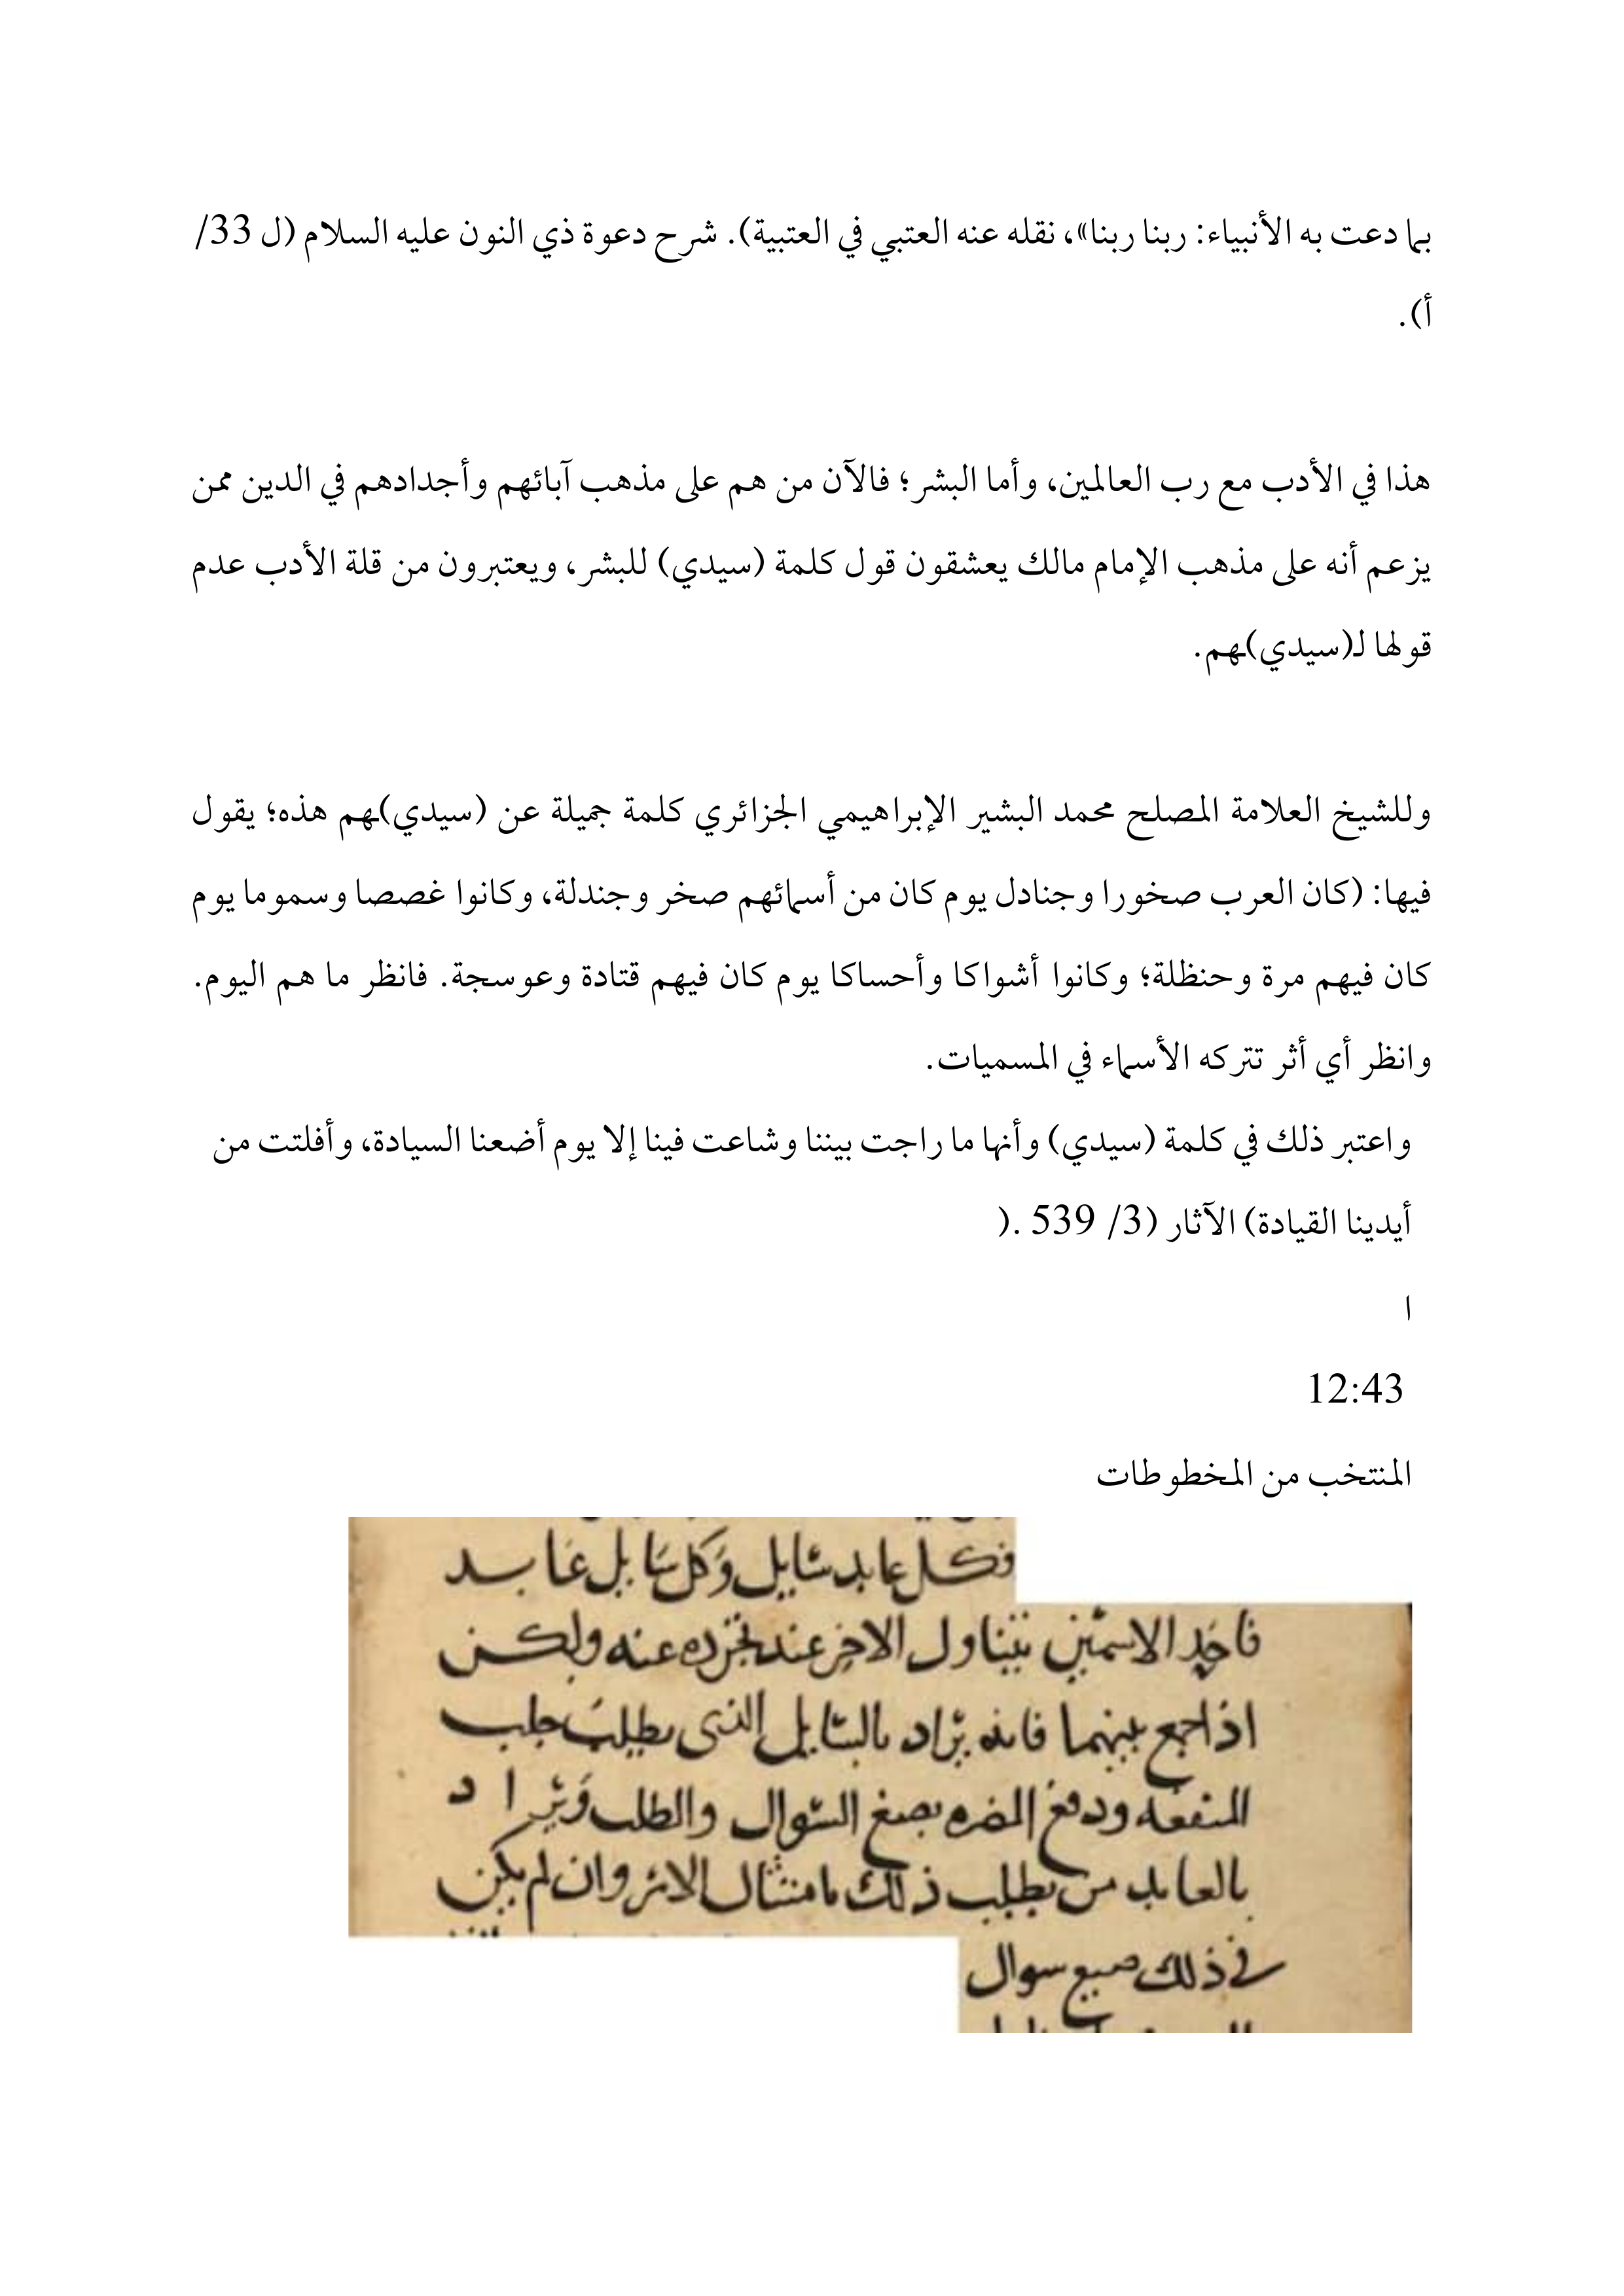 بما دعت به الأنبياء: ربنا ربنا»، نقله عنه العتبي في العتبية). شرح دعوة ذي النون عليه السلام (ل 33/
أ).
هذا في الأدب مع رب العالمين، وأما البشر؛ فالآن من هم على مذهب آبائهم وأجدادهم في الدين ممن
يزعم أنه على مذهب الإمام مالك يعشقون قول كلمة (سيدي) للبشر، ويعتبرون من قلة الأدب عدم
قولها لـ(سيدي)هم.
وللشيخ العلامة المصلح محمد البشير الإبراهيمي الجزائري كلمة جميلة عن (سيدي)هم هذه؛ يقول
فيها: (كان العرب صخورا وجنادل يوم كان من أسمائهم صخر وجندلة، وكانوا غصصا وسموما يوم
كان فيهم مرة وحنظلة؛ وكانوا أشواكا وأحساكا يوم كان فيهم قتادة وعوسجة. فانظر ما هم اليوم.
وانظر أي أثر تتركه الأسماء في المسميات.
واعتبر ذلك في كلمة (سيدي) وأنها ما راجت بيننا وشاعت فينا إلا يوم أضعنا السيادة، وأفلتت من
أيدينا القيادة) الآثار (3/ 539 .(
ا
12:43
المنتخب من المخطوطات
فكل عابد سايل وكل سايل عابد
فاحد الاسمين يتناول الاخر عند تجرده عنه ولكن
اذا جمع بينهما فانه يراد بالسايل الذي يطلب جلب
المنفعه ودفع المضره بصيغ السوال والطلب ويراد
بالعابد من يطلب ذلك بامتثال الامر وان لم يكن
في ذلك صيغ سوال